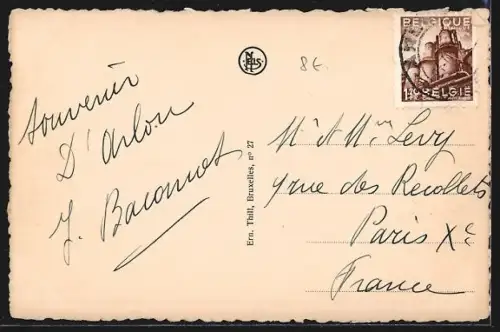 Souvenir
D'Arlon
J. Baconnet
NELS
8 €
Ern. Thill, Bruxelles, n° 27
BELGIQUE
BELGIE
Mr & Mme Levy
9 rue des Recollets
Paris Xe
France